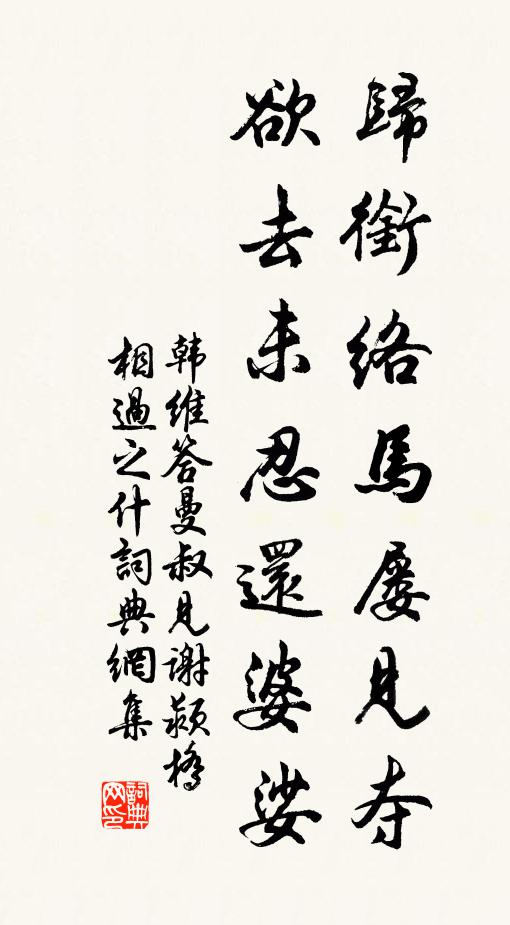 歸銜絡馬屡見夺
欲去未忍還婆娑
韩維答曼叔見谢颍橋
相過之什詞典網集
詞典网印